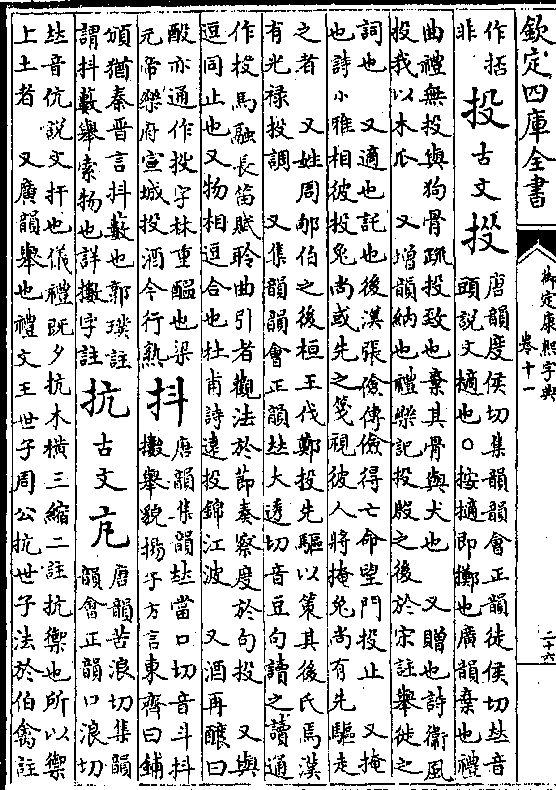 欽定四庫全書
御定康熙字典
卷十一
二十六
作括
非
投
古文
㪗
唐韻度侯切集韻韻會正韻徒侯切𠀤音
頭說文擿也○按擿即擲也廣韻棄也禮
曲禮無投與狗骨疏投致也棄其骨與犬也 又贈也詩衞風
投我以木瓜 又增韻納也禮樂記投殷之後於宋註舉徙之
詞也 又適也託也後漢張儉傳儉得亡命望門投止 又掩
也詩小雅相彼投兔尚或先之箋視彼人將掩兔尚有先驅走
之者 又姓周郇伯之後桓王伐鄭投先驅以策其後氏焉漢
有光祿投調 又集韻韻會正韻𠀤大透切音豆句讀之讀通
作投馬融長笛賦聆曲引者觀法於節奏察度於句投 又與
逗同止也又物相逗合也杜甫詩遠投錦江波 又酒再釀曰
酘亦通作投字林重醞也梁
元帝樂府宣城投酒今行熟
抖
唐韻集韻𠀤當口切音斗抖
擻舉貌揚子方言東齊曰鋪
頒猶秦晉言抖藪也郭璞註
謂抖藪舉索物也詳擻字註
抗
古文
㡿
唐韻苦浪切集韻
韻會正韻口浪切
𠀤音伉說文扞也儀禮既夕抗木橫三縮二註抗禦也所以禦
上土者 又廣韻舉也禮文王世子周公抗世子法於伯禽註